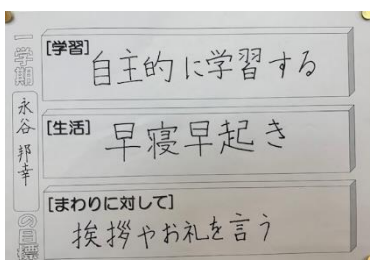 一学期
永谷 邦幸
の目標
[学習]
自主的に学習する
[生活]
早寝早起き
[まわりに対して]
挨拶やお礼を言う